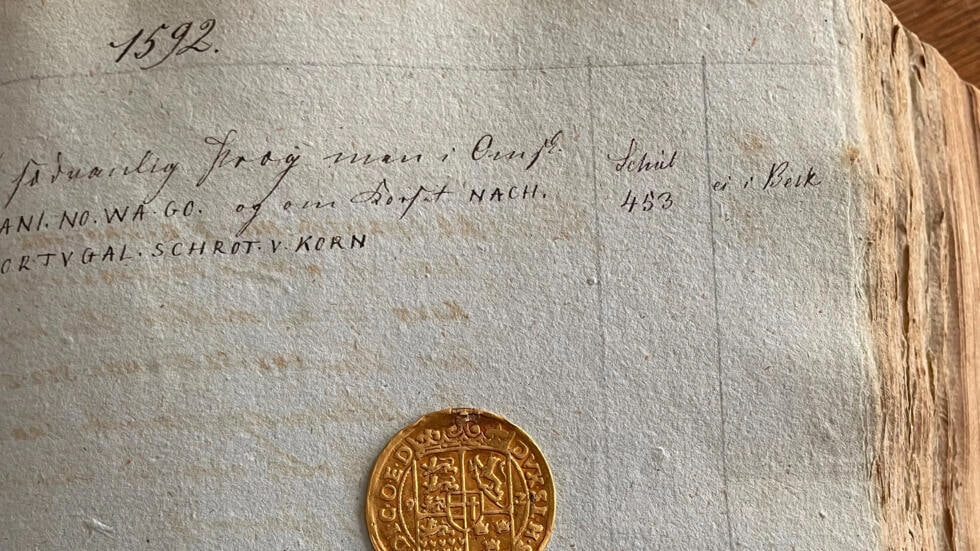 1592.
sædvanlig Præg men i Omsk.
ANI. NO. WA. GO. og om Korset NACH.
ORTVGAL. SCHROT. V. KORN
Schul
453
ei i Berk
GOE.D DVX.SL
9 2